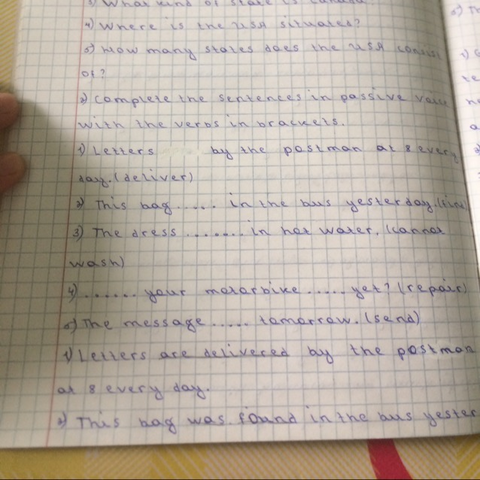 3) What kind of state is Canada
4) Where is the USA situates?
5) How many states does the USA consist
of?
2) Complete the sentences in passive voice
with the verbs in brackets.
1) Letters by the postman at 8 every
day. (deliver)
2) This bag ..... in the bus yesterday. (find)
3) The dress ....... in hot water. (cannot
wash)
4) ....... your motorbike ..... yet? (repair)
5) The message ..... tomorrow. (send)
1) Letters are delivered by the postman
at 8 every day.
2) This bag was found in the bus yester